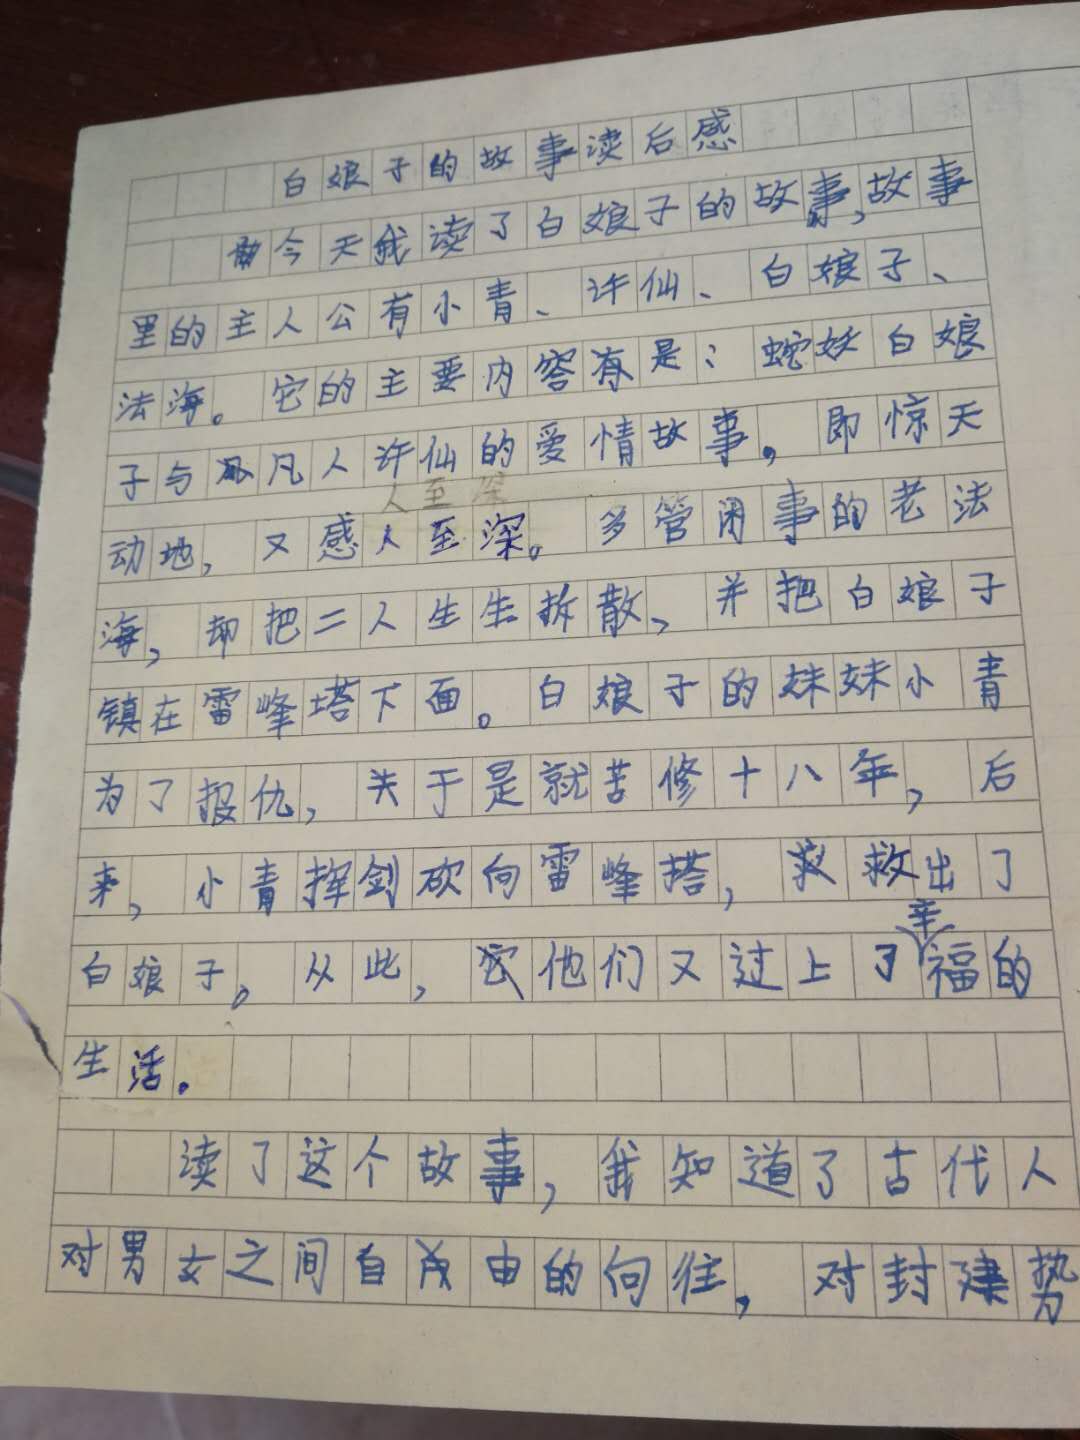 白娘子的故事读后感
今天我读了白娘子的故事,故事
里的主人公有小青、许仙、白娘子、
法海。它的主要内容有是:蛇妖白娘
子与凡人许仙的爱情故事。即惊天
人至深
动地,又感人至深。多管闲事的老法
海,却把二人生生拆散,并把白娘子
镇在雷峰塔下面。白娘子的妹妹小青
为了报仇,于是就苦修十八年,后
来,小青挥剑砍向雷峰塔,救出了
白娘子。从此,他们又过上了幸福的
生活。
读了这个故事,我知道了古代人
对男女之间自由的向往,对封建势